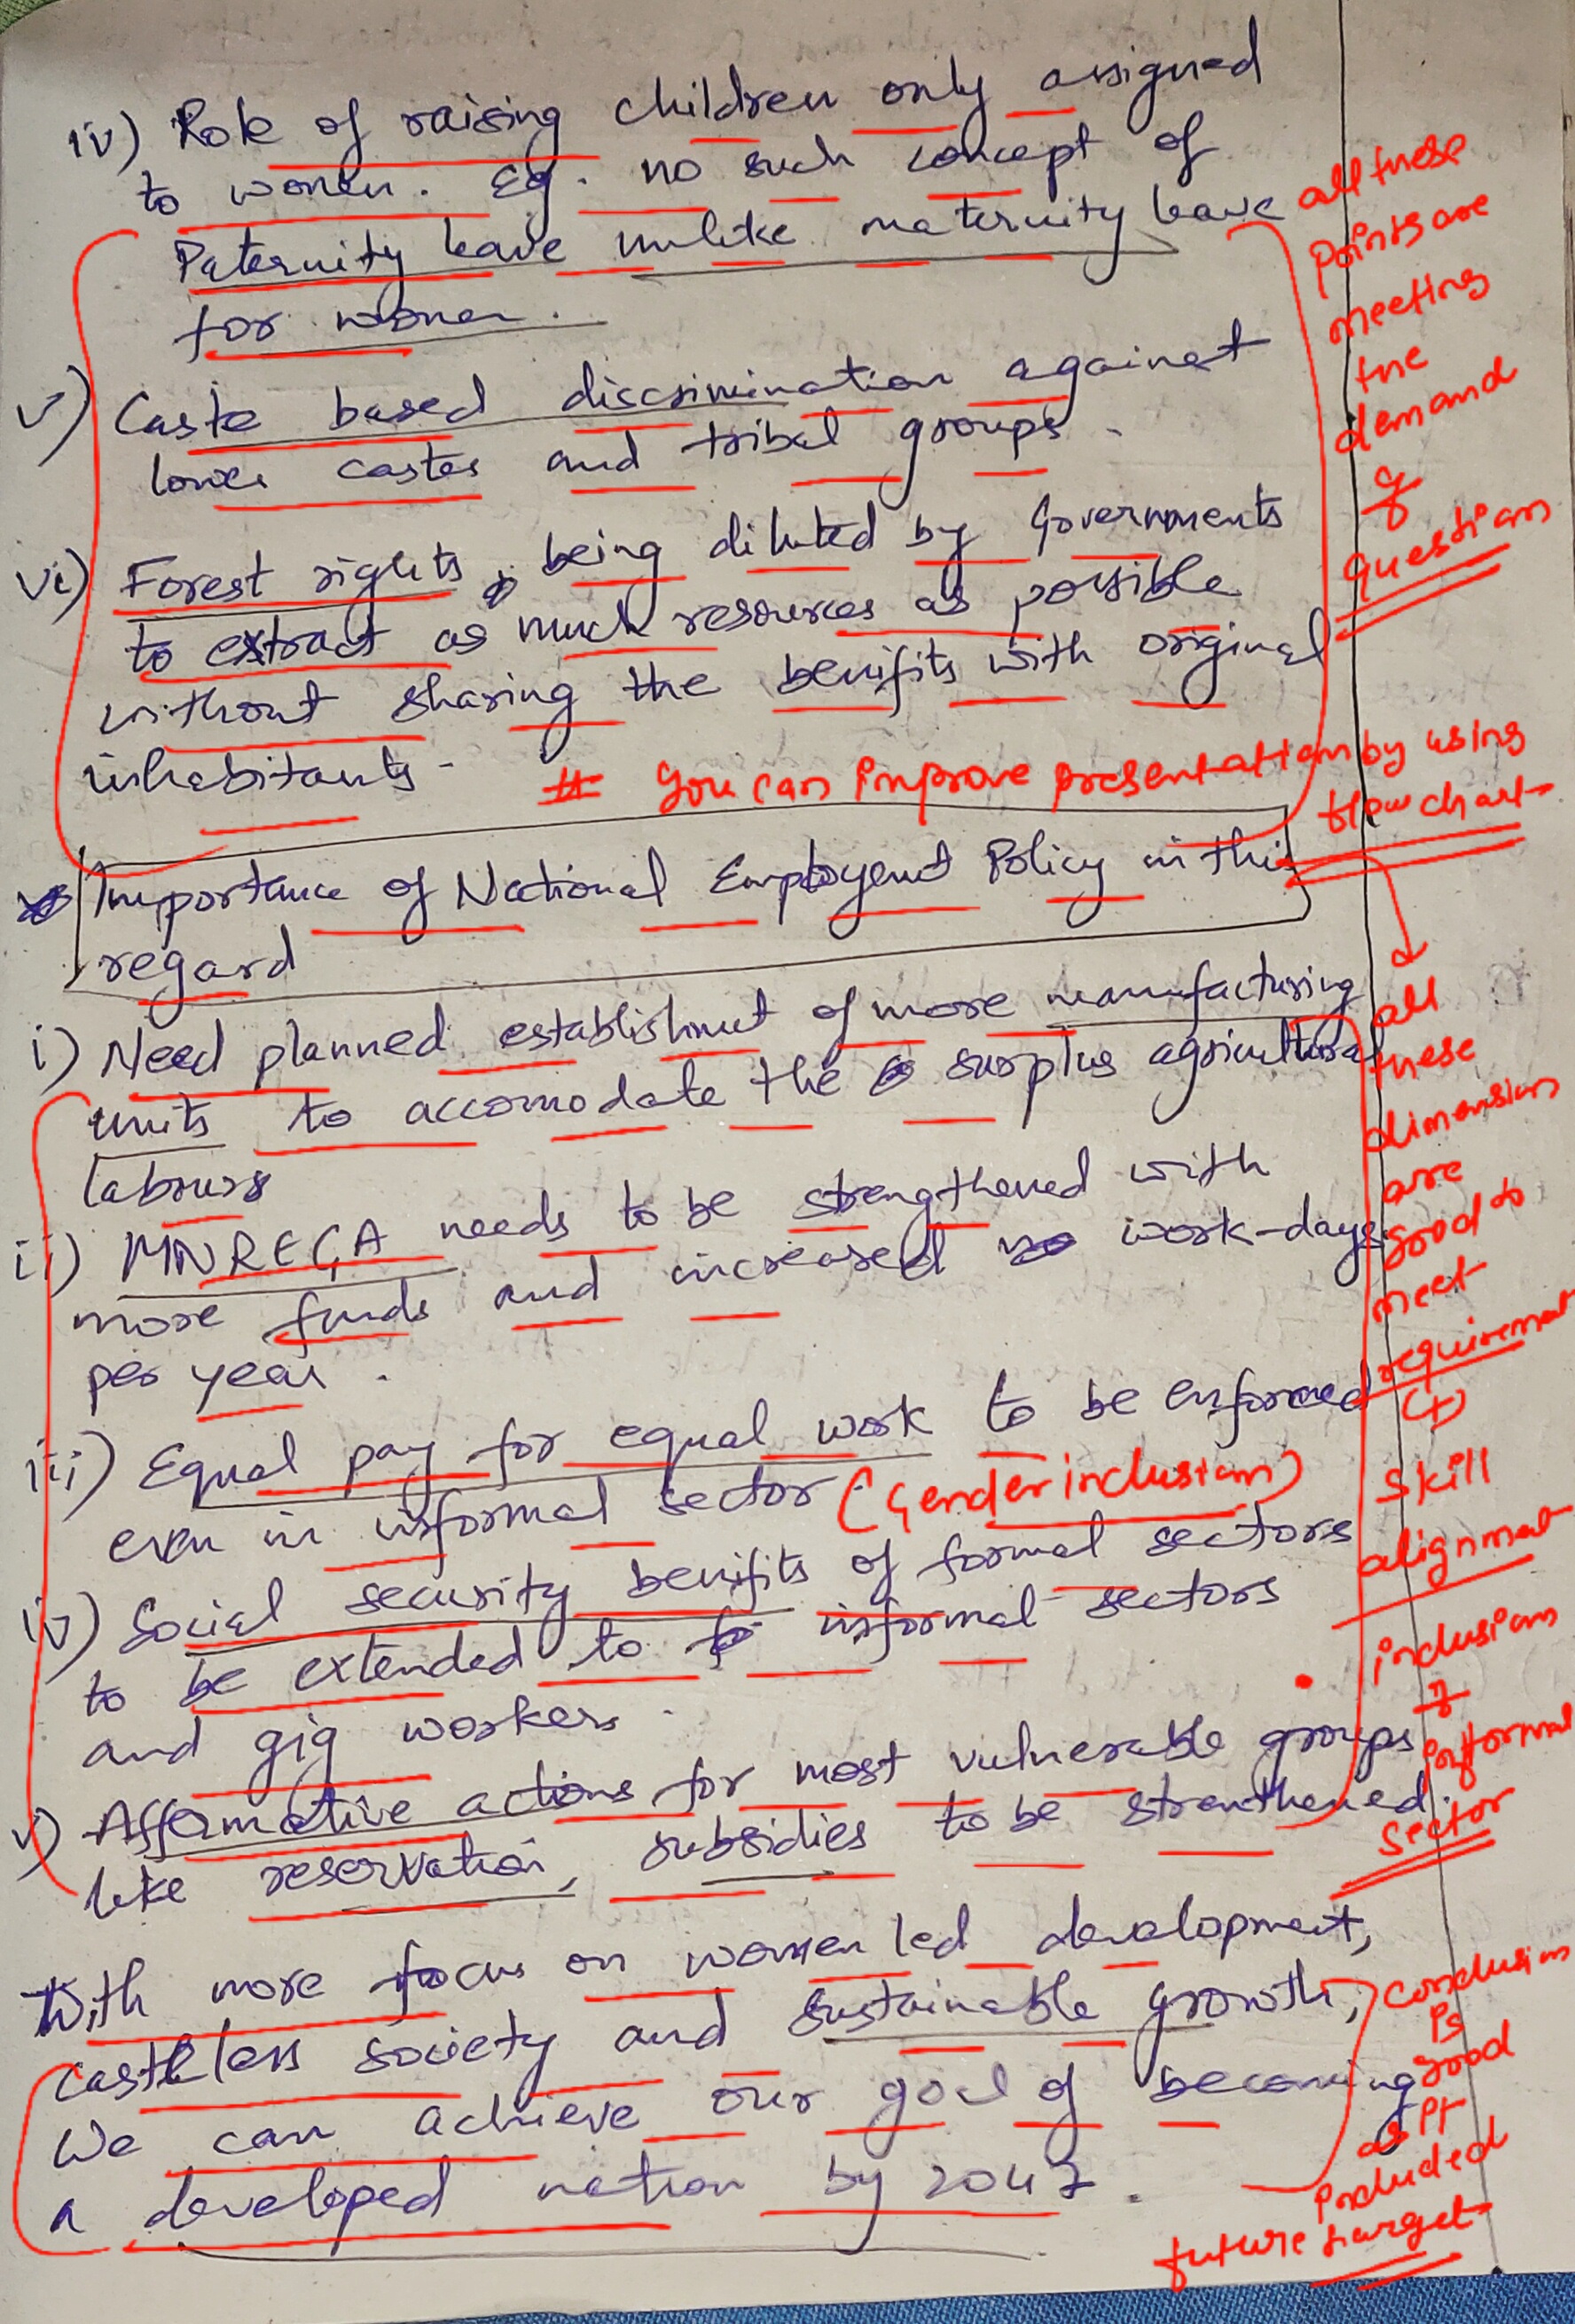 iv) Role of raising children only assigned
to women. Eg. no such concept of
Paternity leave unlike maternity leave
for women.
v) Caste based discrimination against
lower castes and tribal groups.
vi) Forest rights being diluted by Governments
to extract as much resources as possible
without sharing the benifits with original
inhabitants.
all these
points are
meeting
the
demand
of
question
# You can improve presentation by using
flow chart
Importance of National Employent Policy in this
regard
i) Need planned establishmet of more manufacturing
units to accomodate the surplus agricultural
labours
ii) MNREGA needs to be strengthened with
more funds and increased work-days
per year.
iii) Equal pay for equal work to be enforced
even in informal sector. (Gender inclusion)
iv) Social security benifits of formal sectors
to be extended to informal sectors
and gig workers.
v) Affirmative actions for most vulnerable groups
like reservation, subsidies to be strenthened.
all
these
dimension
are
good to
meet
requirement
(+)
skill
alignment
inclusion
of
informal
sector
With more focus on women led development,
casteless society and sustainable growth,
We can achieve our goal of becoming
a developed nation by 2047.
conclusion
is
good
as it
included
future target